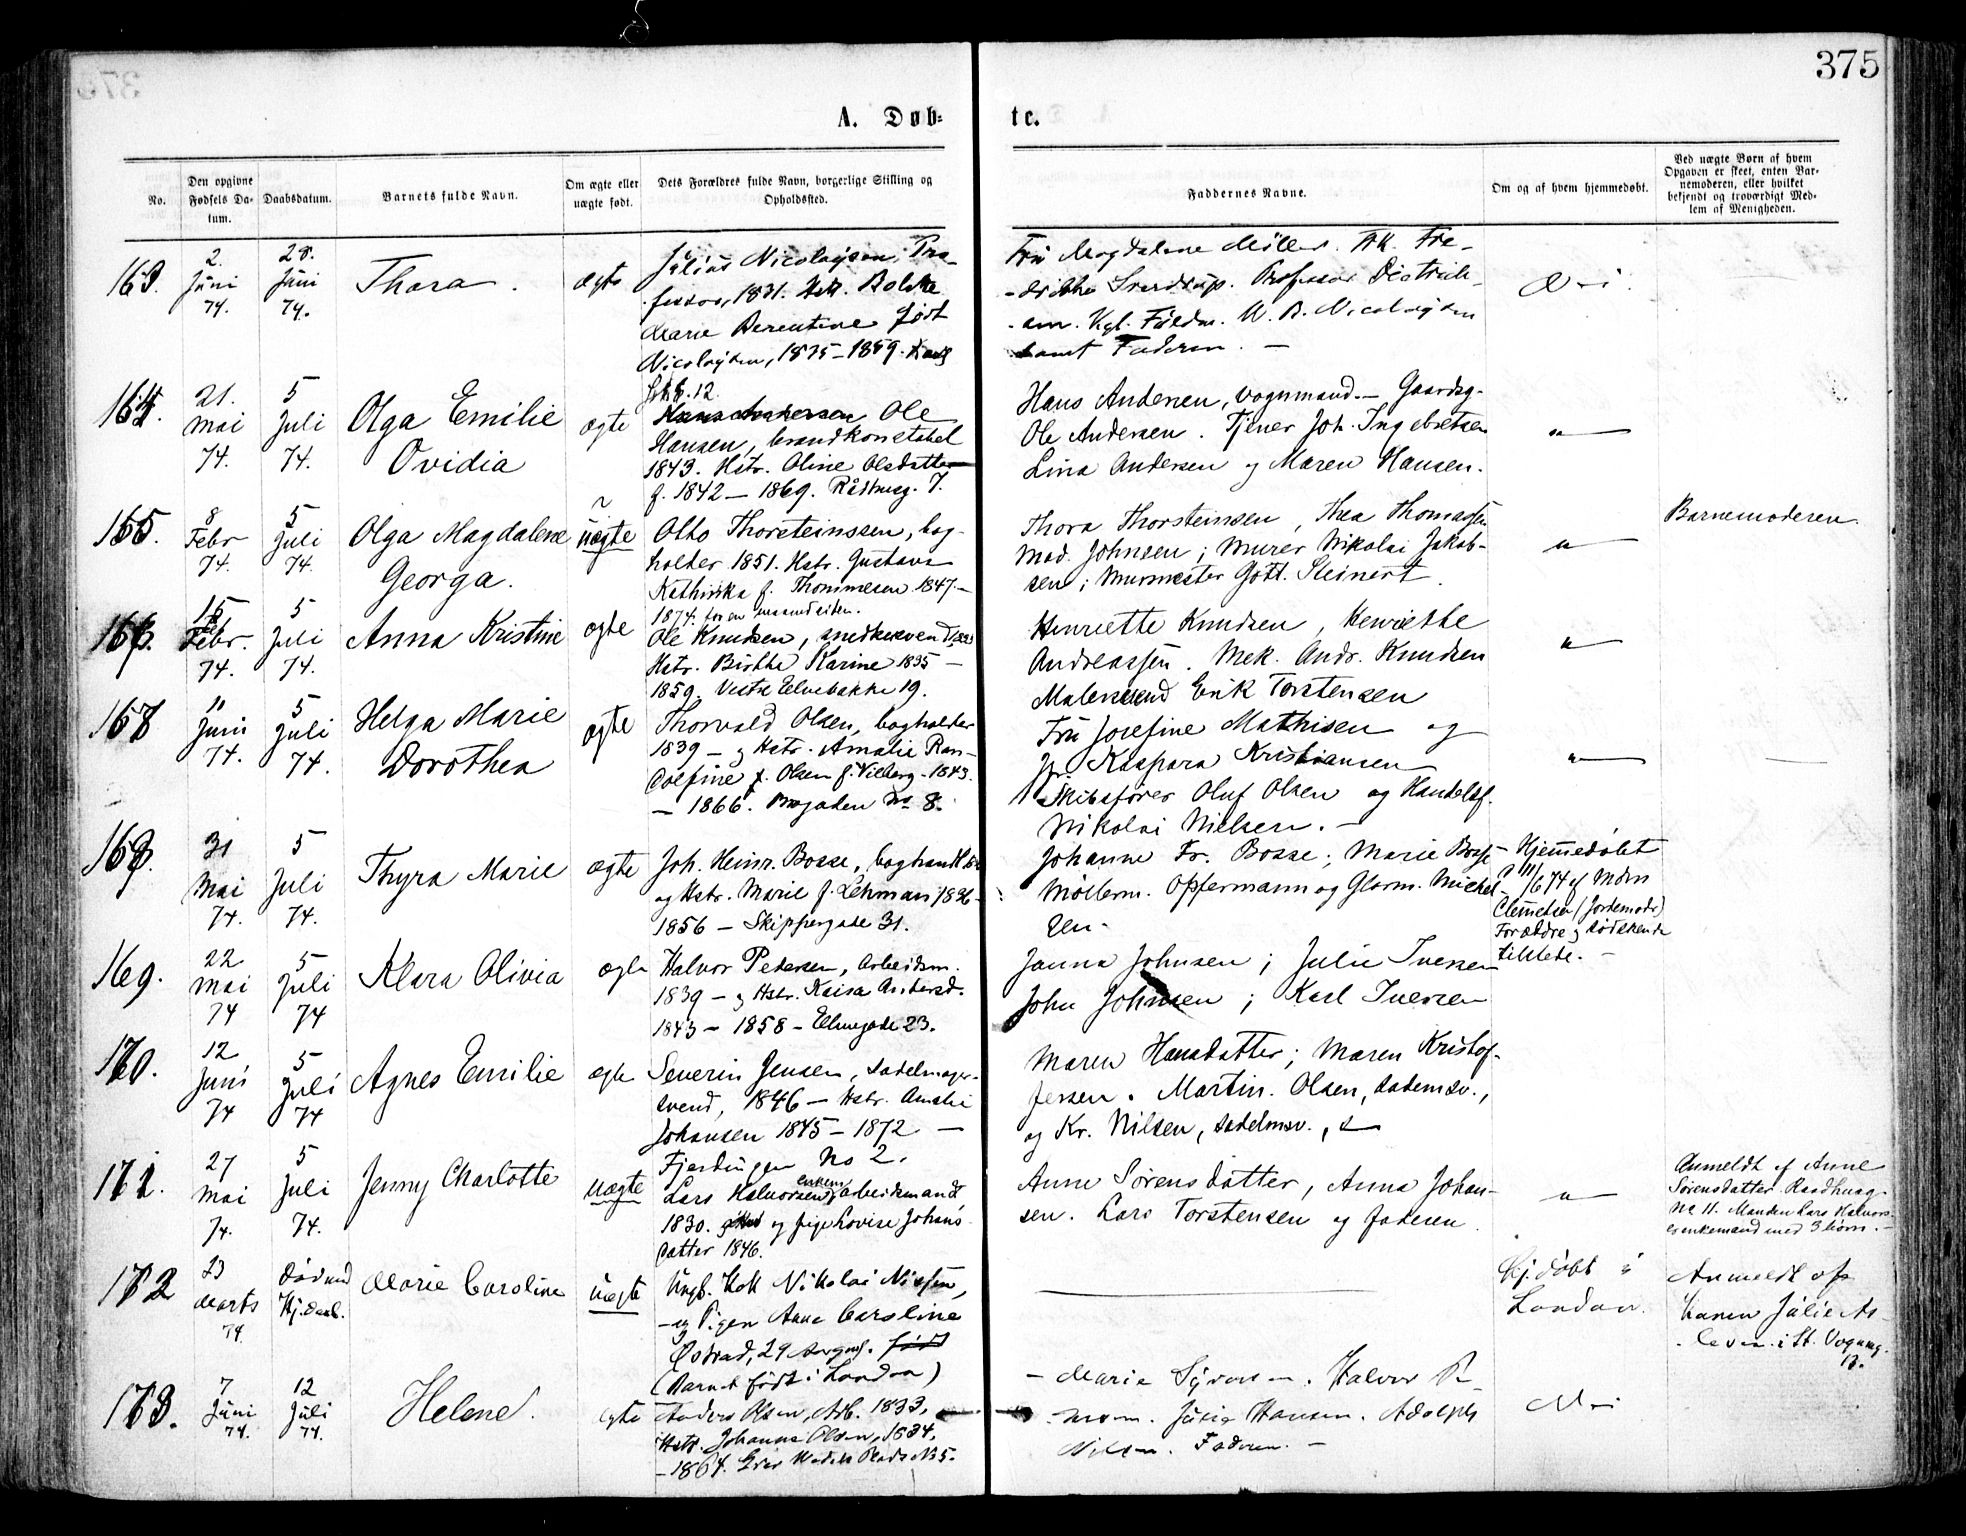 375
A. Døb-
te.
No.
Den opgivne Fødsels Da-tum.
Daabsdatum.
Barnets fulde Navn.
Om ægte eller uægte født.
Dets Forældres fulde Navn, borgerlige Stilling og Opholdssted.
Faddernes Navne.
Om og af hvem hjemmedøbt.
Ved uægte Børn af hvem Opgaven er skeet, enten Bar-nemoderen, eller hvilket bekjendt og troværdigt Med-lem af Menigheden.
163.
2. Juni 74.
28. Juni 74.
Thora.
ægte
Julius Nicolaysen, Pro-
fessor, 1831. Hstr.
Marie Berentine født
Nicolaysen, 1835 - 1859.
Fru Magdalene Møller. Frk. Fre-
Sverdrup. Professor Dietrich-
N. Nicolaysen
samt Faderen. —
164.
21. Mai 74.
5 Juli 74.
Olga Emilie
Ovidia
ægte
12.
Hans Andersen Ole
Hansen, brandkonstabel
1843. Hstr. Oline Olsdatter
f. 1842 — 1869. Rådhusg. 7.
Hans Andersen, vognmand. — Gaardsg-
Ole Andersen. Tjener Joh. Ingebretsen
Lina Andersen og Maren Hansen.
165.
8 Febr 74.
5 Juli 74.
Olga Magdalene
Georga.
uægte
Otto Thorsteinssen, bog-
holder 1851. Hstr. Gustava
Kathinka f. Thommesen 1847. —
1874.
Thora Thorsteinsen, Thea Thomassen
Mad. Johnsen; Murer Nikolai Jakob-
sen; Murmester Gott. Steinert.
"
Barnemoderen.
166.
15 Febr. 74.
5 Juli 74.
Anna Kristine
ægte
Ole Knudsen, snedkersvend
Hstr. Birthe Karine 1835 —
1859. Vestre Elvebakke 19.
Henriette Knudsen, Henriette
Andreassen. Mek. Andr. Knudsen
Malersvend Erik Torstensen
"
167
11 Juni 74.
5 Juli 74.
Helga Marie
Dorothea
ægte
Thorvald Olsen, bogholder
1839 — og Hstr. Amalie Ran-
dolfine f. Olsen f. Vilberg - 1843.
— 1866. No 8.
Fru Josefine Mathisen og
Jfr. Kaspara Kristiansen
Skibsfører Oluf Olsen og Handelsf.
Nikolai Nielsen. —
"
168.
31 Mai 74.
5 Juli 74.
Thyra Marie
ægte
Joh. Heinr. Bosse, boghandler
og Hstr. Marie f. Lehmann 1836 -
1856 — Skippergade 31.
Johanne Fr. Bosse; Marie Bosse
Møllerm. Opfermann og Glarm. Michel-
sen.
Hjemmedøbt
Clemetsen (Jordemoder)
Forældre og Sødskende
tilstede. —
169.
22 Mai 74
5 Juli 74
Klara Olivia
ægte
Halvor Pedersen, Arbeidsm.
1839 — og Hstr. Kaisa Andersd.
1843 — 1858 — Elvegade 23.
Janna Johnsen; Julie Iversen
John Johnsen; Karl Iversen
170.
12 Juni 74
5 Juli 74
Agnes Emilie
ægte
Severin Jensen, Sadelmager-
svend, 1846 — Hstr. Amalie
Johansen 1845 — 1872 —
Fjerdingen No 2.
Maren Hansdatter; Maren Kristof-
fersen. Martin Olsen,
og Kr. Nilsen, Sadelmsv.,
171.
27 Mai 74.
5 Juli 74.
Jenny Charlotte
uægte
Lars Halvorsen enkem. arbeidsmand
1830. og pige Lovise Johans-
datter 1846.
Anne Sørensdatter, Anna Johan-
sen. Lars Torstensen og faderen.
"
Anmeldt af Anne
Sørensdatter. Raadhusg.
No 11. Manden Lars Halvors.
er enkemand med 3 børn. —
172
23 Marts 74.
Marie Caroline
uægte
Ungk. Kok Nikolai Nissen,
og Pigen Anne Caroline
29 Aar gml. født
(Barnet født i London)
Hj. døbt i
London.
Anmeldt af
Karen Julie As-
i St. Vognmg.
12.
173.
7 Juni 74.
12 Juli 74.
Helene.
ægte
Anders Olsen, Arb. 1833,
Hstr. Johanne Olsen, 1834,
— 1864. Grev Wedels Plads No 5.
Marie Halvor
Julie Hansen. Adolph
Nilsen. Faderen. —
Nei